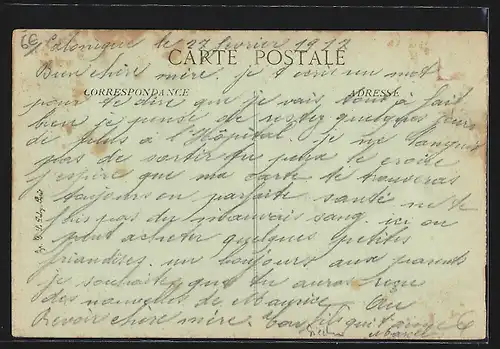 Salonique le 27 février 1917
CARTE POSTALE
Bien chère mère. je t'ecris un mot
CORRESPONDANCE
ADRESSE
pour te dire que je vais tout à fait
bien je pense de rester quelques jours
de plus à l'Hôpital. je me languis
pas de sortir tu peux le croire
j'espère que ma carte te trouveras
toujours en parfaite santé ne te
fais pas du mauvais sang. ici on
peut acheter quelques petites
friandises. un bonjours aux parents
je souhaite que tu auras reçu
des nouvelles de Au
revoir chère mère. Ton fils qui t'aime
Marcel